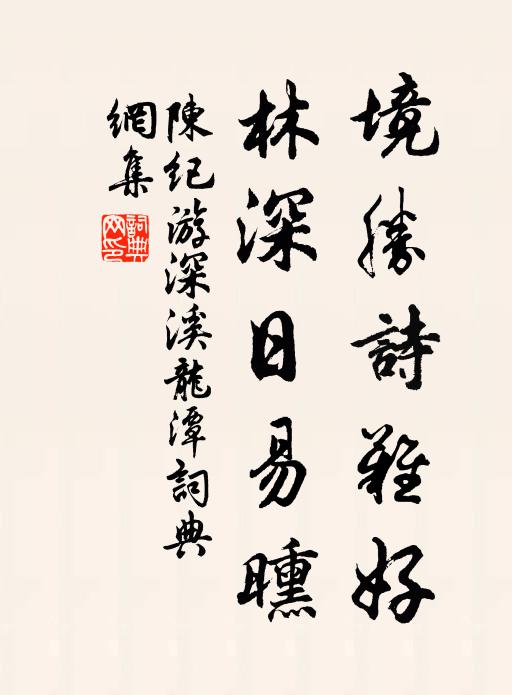 境勝詩難好
林深日易曛
陳紀游深溪龍潭詞典
網集
詞典
网印